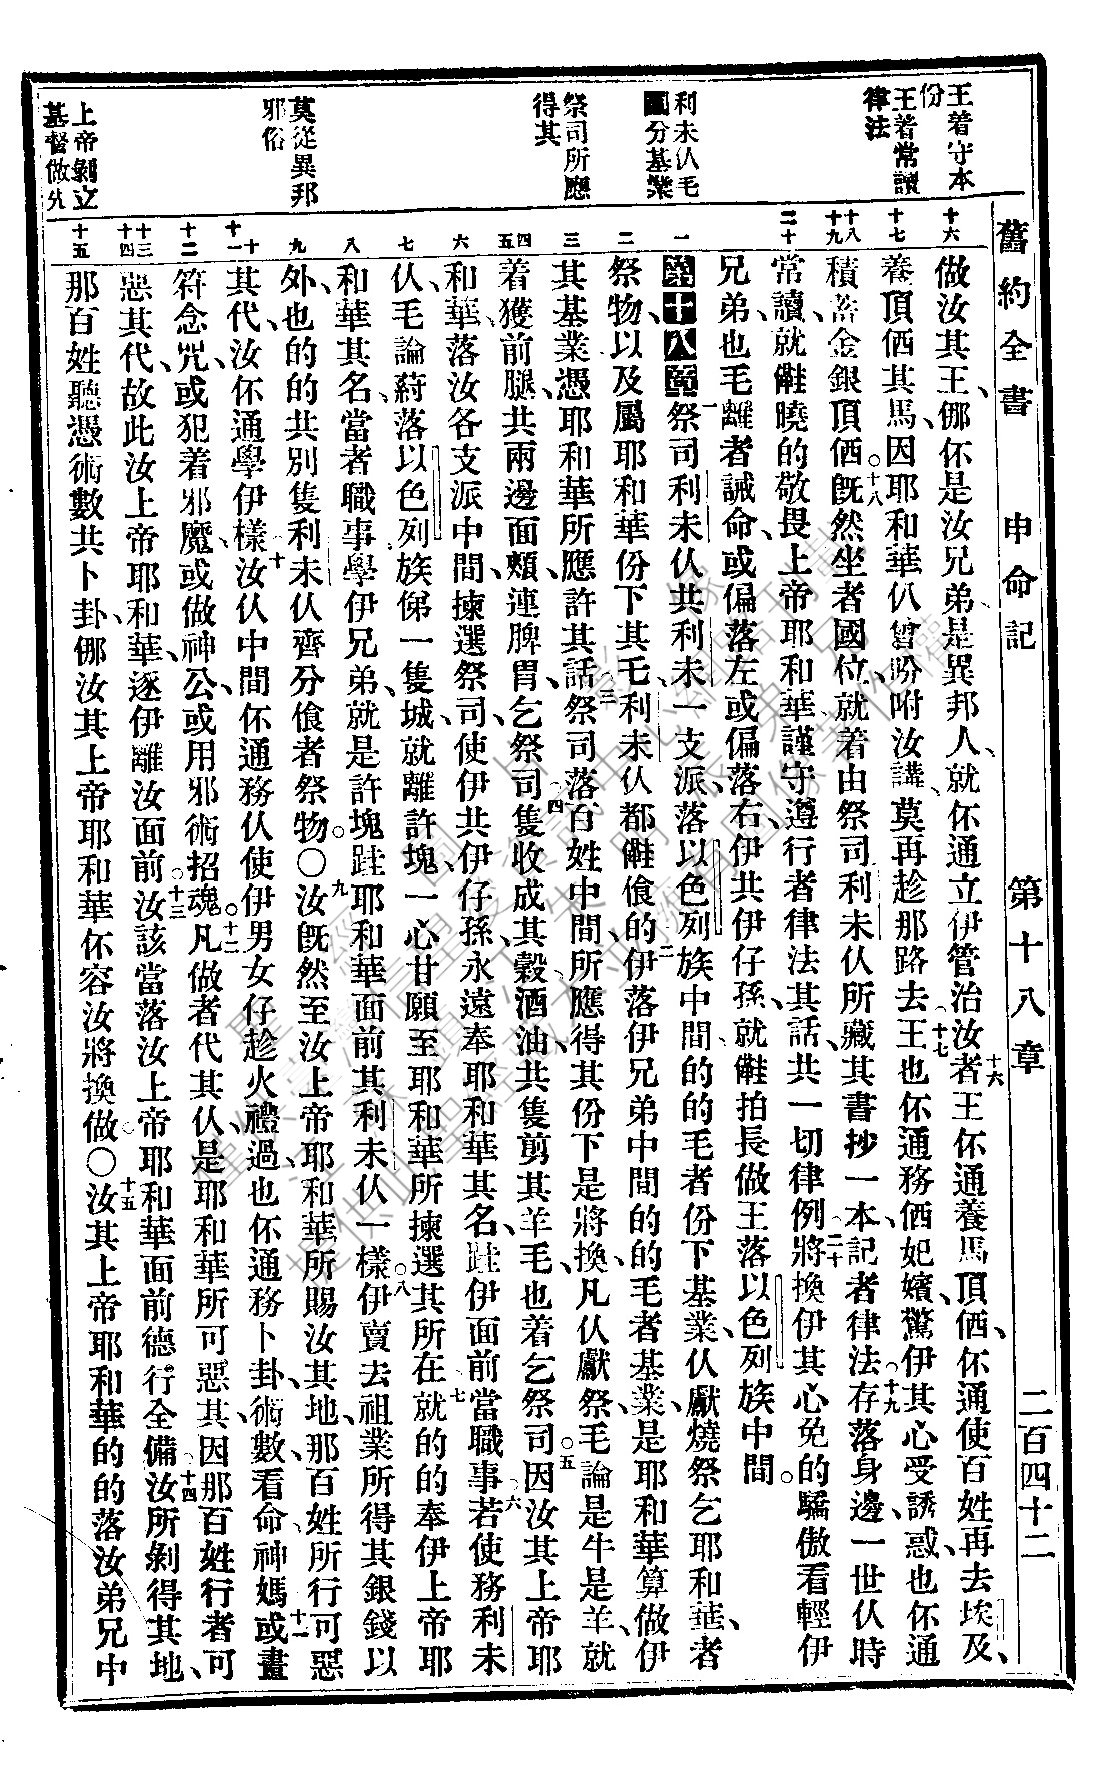 舊約全書 申命記 第十八章 二百四十二
王着守本份
王着常讀律法
利未仈毛分基業
祭司所應得其
莫從異邦邪俗
上帝剝立基督做
十六 十七 十八 十九 二十 一 二 三 四 五 六 七 八 九 十 十一 十二 十三 十四 十五
做汝其王、㑚伓是汝兄弟是異邦人、就伓通立伊管治汝者十六王伓通養馬頂、伓通使百姓再去埃及、
養頂其馬、因耶和華仈曾吩咐汝講、莫再趁那路去十七王也伓通務妃嬪、驚伊其心受誘惑、也伓通
積蓄金銀頂。十八旣然坐者國位、就着由祭司利未仈所藏其書、抄一本記者律法、十九存落身邊、一世仈時
常讀、就曉的敬畏上帝耶和華、謹守遵行者律法其話、共一切律例、二十將換伊其心免的驕傲看輕伊
兄弟、也毛離者誡命、或偏落左、或偏落右、伊共伊仔孫、就拍長做王落以色列族中間。
第十八章一祭司利未仈、共利未一支派、落以色列族中間、的的毛者份下基業、仈獻燒祭乞耶和華、者
祭物、以及屬耶和華份下其、二毛利未仈都食的、伊落伊兄弟中間、的的毛者基業、是耶和華算做伊
其基業、憑耶和華所應許其話、三祭司落百姓中間、所應得其份下、是將換、凡仈獻祭、毛論是牛是羊、就
着獲前腿、共兩邊面頰、連脾胃、乞祭司、四隻收成其穀酒油、共隻剪其羊毛、也着乞祭司。五因汝其上帝耶
和華、落汝各支派中間、揀選祭司、使伊共伊仔孫、永遠奉耶和華其名、跬伊面前當職事、六若使務利未
仈、毛論蒔落以色列族一隻城、就離許塊、一心甘願至耶和華所揀選其所在、七就的的奉伊上帝耶
和華其名、當者職事、學伊兄弟、就是許塊跬耶和華面前其利未仈一樣。八伊賣去祖業所得其銀錢以
外、也的的共別隻利未仈、齊分食者祭物。〇九汝旣然至汝上帝耶和華所賜汝其地、那百姓所行可惡
其代、汝伓通學伊樣、十汝仈中間、伓通務仈使伊男女仔趁火禮過、也伓通務卜卦、術數、看命、神媽、十一或畫
符、念咒、或犯着邪魔、或做神公、或用邪術招魂。十二凡做者代其仈、是耶和華所可惡其、因那百姓行者可
惡其代、故此汝上帝耶和華、逐伊離汝面前、十三汝該當落汝上帝耶和華面前、德行全備、十四汝所剝得其地、
那百姓聽憑術數共卜卦、㑚汝其上帝耶和華、伓容汝將換做。〇十五汝其上帝耶和華、的的落汝弟兄中